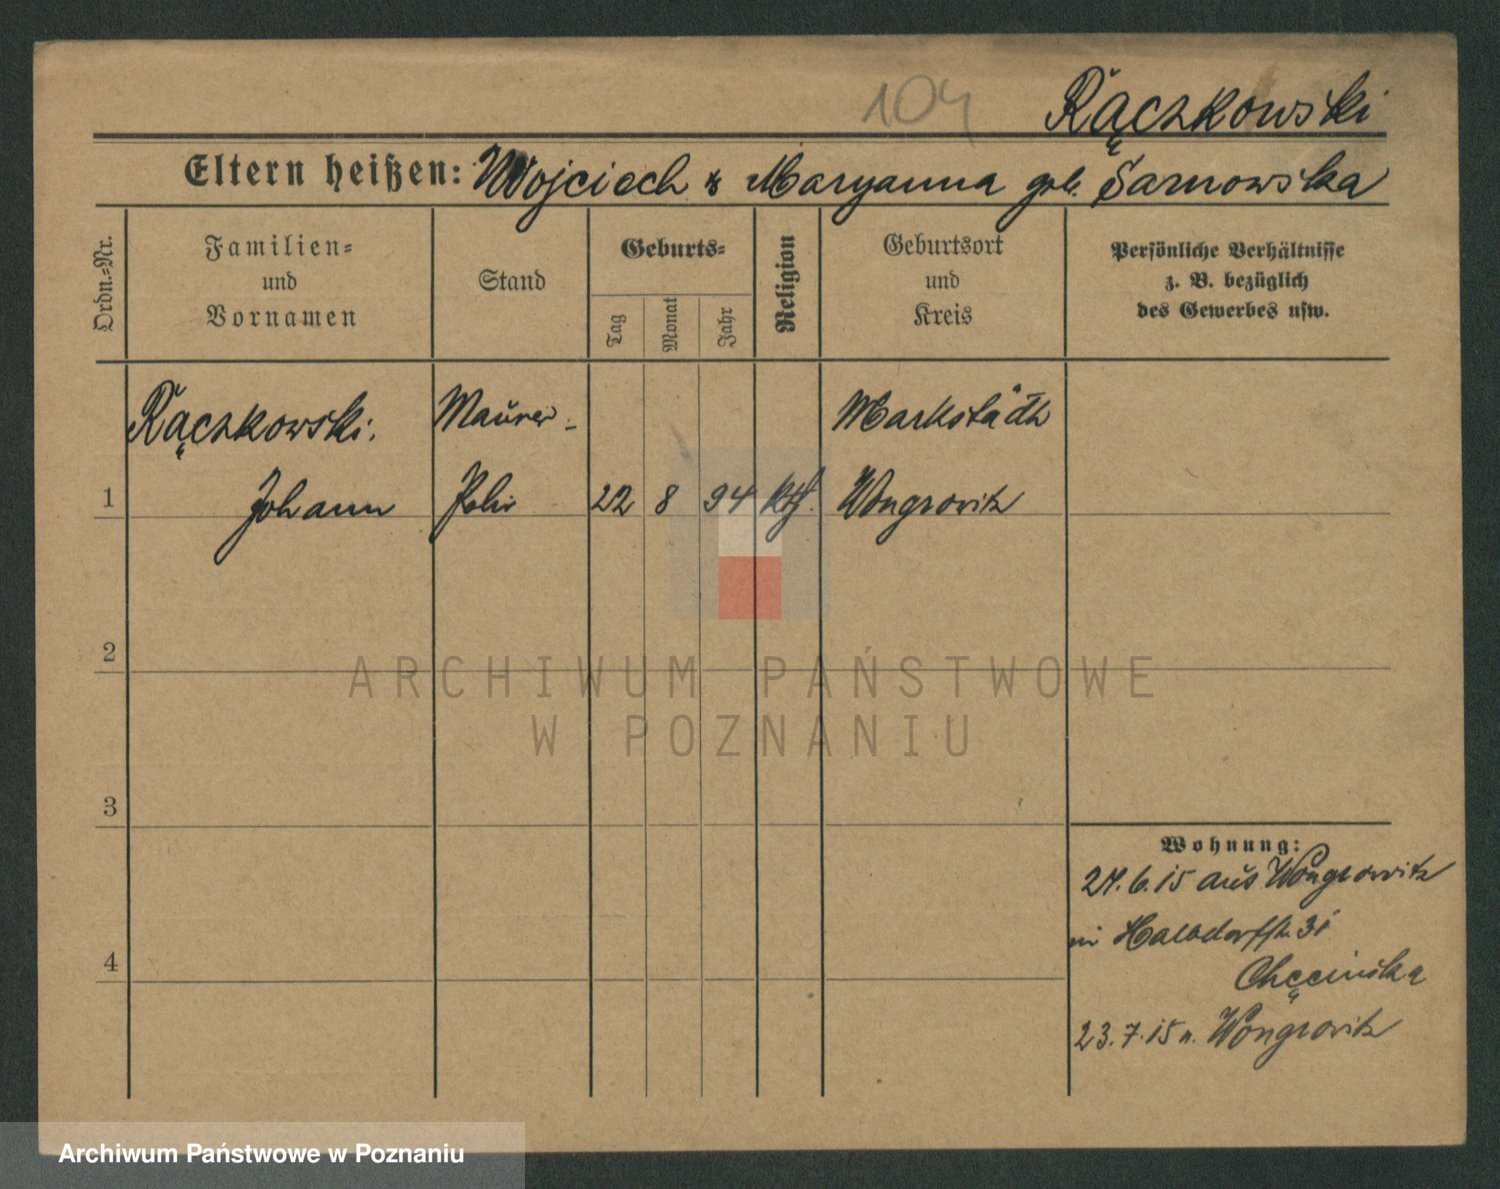 104 Rączkowski
Eltern heißen: Wojciech & Maryanna geb. Sarnowska
Ordn.-Nr.
Familien-
und
Vornamen
Stand
Geburts-
Tag
Monat
Jahr
Religion
Geburtsort
und
Kreis
Persönliche Verhältnisse
z. B. bezüglich
des Gewerbes usw.
Rączkowski, Maurer- Markstädt
1 Johann Polir 22 8 94 kth. Wongrowitz
2
3
4
ARCHIWUM PAŃSTWOWE
W POZNANIU
Wohnung:
24.6.15 aus Wongrowitz
Halbdorfstr. 31
Chęcińska
23.7.15 n. Wongrowitz
Archiwum Państwowe w Poznaniu